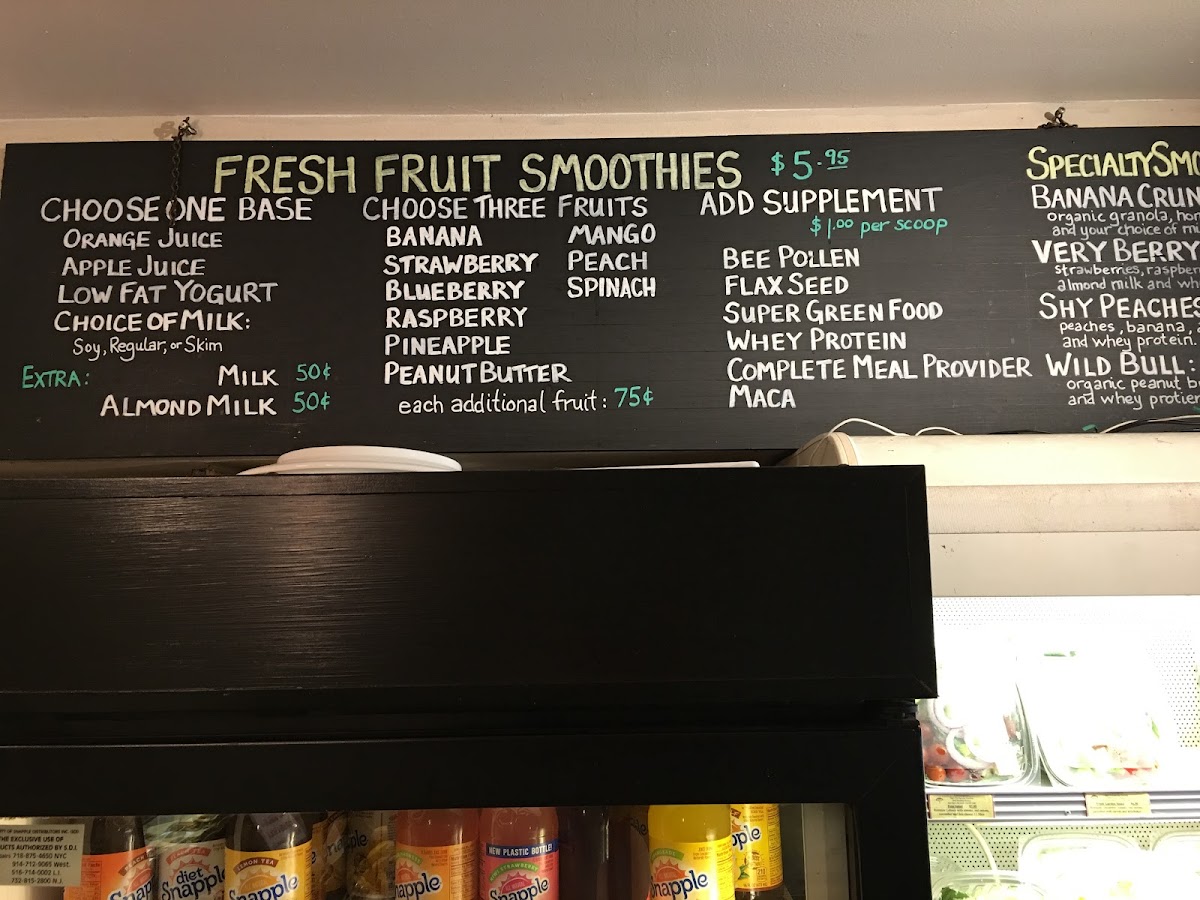 FRESH FRUIT SMOOTHIES $5.95
CHOOSE ONE BASE
ORANGE JUICE
APPLE JUICE
LOW FAT YOGURT
CHOICE OF MILK:
Soy, Regular, or Skim
EXTRA: MILK 50¢
ALMOND MILK 50¢
CHOOSE THREE FRUITS
BANANA MANGO
STRAWBERRY PEACH
BLUEBERRY SPINACH
RASPBERRY
PINEAPPLE
PEANUT BUTTER
each additional fruit: 75¢
ADD SUPPLEMENT
$1.00 per scoop
BEE POLLEN
FLAX SEED
SUPER GREEN FOOD
WHEY PROTEIN
COMPLETE MEAL PROVIDER
MACA
SPECIALTY SMO
BANANA CRUN
organic granola, hon
and your choice of mi
VERY BERRY
strawberries, raspber
almond milk and whe
SHY PEACHES
peaches, banana, a
and whey protein.
WILD BULL:
organic peanut b
and whey protien
THE EXCLUSIVE USE OF
UCTS AUTHORIZED BY S.D.I.
718-875-4650 NYC
914-712-9065 West.
516-714-0002 L.I.
732-815-2800 N.J.
Snapple
diet
Snapple
LEMON TEA
Snapple
Snapple
NEW PLASTIC BOTTLE!
Snapple
Snapple